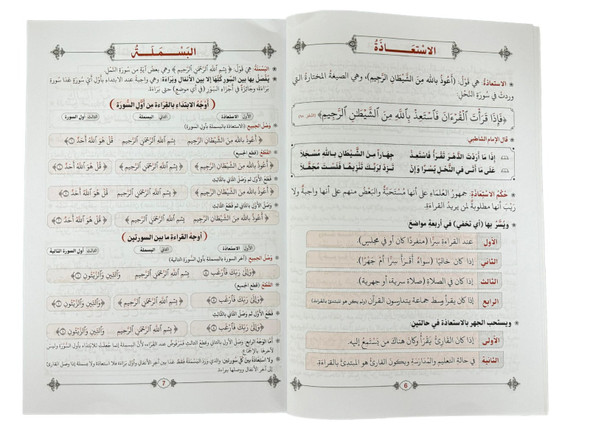 الاسْتِعَـاذَةُ
الاستعاذة: هي قول: (أَعُوذُ بِاللهِ مِنَ الشَّيْطَانِ الرَّجِيمِ)، وهي الصيغة المختارة التي
وردت في سورة النحل.
﴿فَإِذَا قَرَأْتَ الْقُرْءَانَ فَاسْتَعِذْ بِاللَّهِ مِنَ الشَّيْطَٰنِ الرَّجِيمِ﴾
قال الإمام الشاطبي:
إِذَا مَا أَرَدْتَ الدَّهْرَ تَقْرَأُ فَاسْتَعِذْ جِهَارًا مِنَ الشَّيْطَانِ بِاللهِ مُسْجَلَا
عَلَى مَا أَتَى فِي النَّحْلِ يُسْرًا وَإِنْ تَزِدْ لِرَبِّكَ تَنْزِيهًا فَلَسْتَ مُجَهَّلَا
حكم الاستعاذة: جمهور العلماء على أنها مستحبة والبعض منهم على أنها واجبة ولا
ريب أنها مطلوبة لمن يريد القراءة.
ويسر بها (أي تخفى) في أربعة مواضع
الأول عند القراءة سرًّا (منفردًا كان أو في مجلس).
الثاني إذا كان خاليًا (سواءً أقرأ سرًّا أم جهرًا).
الثالث إذا كان في الصلاة (صلاة سرية، أو جهرية)
الرابع إذا كان يقرأ وسط جماعة يتدارسون القرآن (ولم يكن هو المبتدئ بالقراءة)
ويستحب الجهر بالاستعاذة في حالتين
الأولى إذا كان القارئ يقرأ وكان هناك من يستمع إليه.
الثانية في حالة التعليم والمدارسة ويكون القارئ هو المبتدئ بالقراءة.
6
البَسْمَـلَـةُ
البسملة: هي قول: ﴿بِسْمِ اللَّهِ الرَّحْمَٰنِ الرَّحِيمِ﴾ وهي بعض آية من سورة النمل.
يفصل بها بين السور كلها إلا بين الأنفال وبراءة. وهي واجبة عند الابتداء بأول أي سورة عدا سورة
براءة وجائزة في أجزاء السور (في أي موضع) حتى براءة.
(أوجه الابتداء بالقراءة من أول السورة)
الأول الاستعاذة الثاني البسملة الثالث أول السورة
وصل الجميع (الاستعاذة بالبسملة بأول السورة)
﴿أَعُوذُ بِاللهِ مِنَ الشَّيْطَانِ الرَّجِيمِ بِسْمِ اللَّهِ الرَّحْمَٰنِ الرَّحِيمِ قُلْ هُوَ اللَّهُ أَحَدٌ ①﴾
القطع (قطع الجميع)
﴿أَعُوذُ بِاللهِ مِنَ الشَّيْطَانِ الرَّجِيمِ﴾ ﴿بِسْمِ اللَّهِ الرَّحْمَٰنِ الرَّحِيمِ﴾ ﴿قُلْ هُوَ اللَّهُ أَحَدٌ ①﴾
قطع الأول ثم وصل الثاني بالثالث
﴿أَعُوذُ بِاللهِ مِنَ الشَّيْطَانِ الرَّجِيمِ﴾ ﴿بِسْمِ اللَّهِ الرَّحْمَٰنِ الرَّحِيمِ قُلْ هُوَ اللَّهُ أَحَدٌ ①﴾
وصل الأول بالثاني ثم قطع الثالث
﴿أَعُوذُ بِاللهِ مِنَ الشَّيْطَانِ الرَّجِيمِ بِسْمِ اللَّهِ الرَّحْمَٰنِ الرَّحِيمِ﴾ ﴿قُلْ هُوَ اللَّهُ أَحَدٌ ①﴾
(أوجه القراءة ما بين السورتين)
الثاني البسملة الثالث أول السورة التالية
وصل الجميع (آخر السورة بالبسملة بأول السورة التالية)
﴿وَإِلَىٰ رَبِّكَ فَارْغَب بِسْمِ اللَّهِ الرَّحْمَٰنِ الرَّحِيمِ وَالتِّينِ وَالزَّيْتُونِ ①﴾
القطع (قطع الجميع)
﴿وَإِلَىٰ رَبِّكَ فَارْغَب ⑧﴾ ﴿بِسْمِ اللَّهِ الرَّحْمَٰنِ الرَّحِيمِ﴾ ﴿وَالتِّينِ وَالزَّيْتُونِ ①﴾
قطع الأول ثم وصل الثاني بالثالث
﴿وَإِلَىٰ رَبِّكَ فَارْغَب ⑧﴾ ﴿بِسْمِ اللَّهِ الرَّحْمَٰنِ الرَّحِيمِ وَالتِّينِ وَالزَّيْتُونِ ①﴾
7